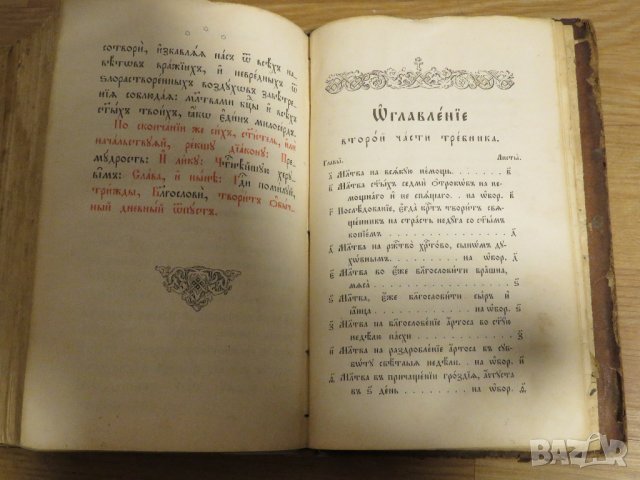 сотвори́, и҆збавлѧ́ѧ на́съ ѿ всѣ́хъ на-
вѣ́тѡвъ вра́жїихъ, и҆ невре́дныхъ ѿ
ѕлорастворе́нныхъ воздꙋ́хѡвъ
соблюда́ѧ: мл҃твами бцⷣы и҆ всѣ́хъ
ст҃ы́хъ твои́хъ, ꙗ҆́кѡ є҆ди́нъ милосе́рдъ.
По сконча́нїи же си́хъ, ст҃и́тель, и҆лѝ
нача́льствꙋѧй, ре́кшꙋ дїа́конꙋ: Пре-
мꙋ́дрость: И҆ ли́кꙋ: Чⷭ҇тнѣ́йшꙋю херꙋ-
ви̑мъ: Сла́ва, и҆ ны́нѣ: Гдⷭ҇и поми́лꙋй,
три́жды, Бл҃гословѝ, твори́тъ ѡ҆бы́ч-
ный дне́вный ѿпꙋ́стъ.
Ѡ҆главле́нїе
второ́й ча́сти тре́бника.
Главы̀. Листы̀.
а҃ Мл҃тва на всѧ́кꙋю не́мощь. . . . . . . в҃
в҃ Мл҃тва ст҃ы́хъ седмѝ ѻ҆трокѡ́въ на не-
мощна́го и҆ не спѧ́щаго . . на ѡ҆бор. в҃
г҃ Послѣ́дованїе, є҆гда̀ вр҃тъ твори́тъ свѧ-
ще́нникъ на стра́сть недꙋ́га со ст҃ы́мъ
копїе́мъ . . . . . . . . . . д҃
д҃ Мл҃тва на ржⷭ҇тво̀ хрⷭ҇то́во, сынѡ́мъ дꙋ-
хѡ́внымъ . . . . . . . на ѡ҆бор. д҃
є҃ Мл҃тва во є҆́же бл҃гослови́ти бра̑шна,
мѧса̀ . . . . . . . . . . є҃
ѕ҃ Мл҃тва, є҆́же бл҃гослови́ти сы́ръ и҆
ꙗ҆́ица . . . . . . . . . . ѕ҃
з҃ Мл҃тва на бл҃гослове́нїе а҆́ртоса во ст҃ꙋ́ю
недѣ́лю па́схи . . . . . на ѡ҆бор. ѕ҃
и҃ Мл҃тва на раздробле́нїе а҆́ртоса въ сꙋб-
бѡ́тꙋ свѣ́тлыѧ недѣ́ли. . . на ѡ҆бор.
Мл҃тва въ причаще́нїи гро́здїѧ, а҆́ѵгꙋста
въ ѕ҃ де́нь . . . . . . на ѡ҆бор.
BAZAR